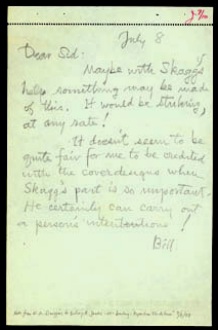 July 8
Dear Sid:
Maybe with Skagg's
help something may be made
of this. It would be striking,
at any rate!
It doesn't seem to be
quite fair for me to be credited
with the coverdesigns when
Skagg's part is so important.
He certainly can carry out
a person's intentions!
Bill